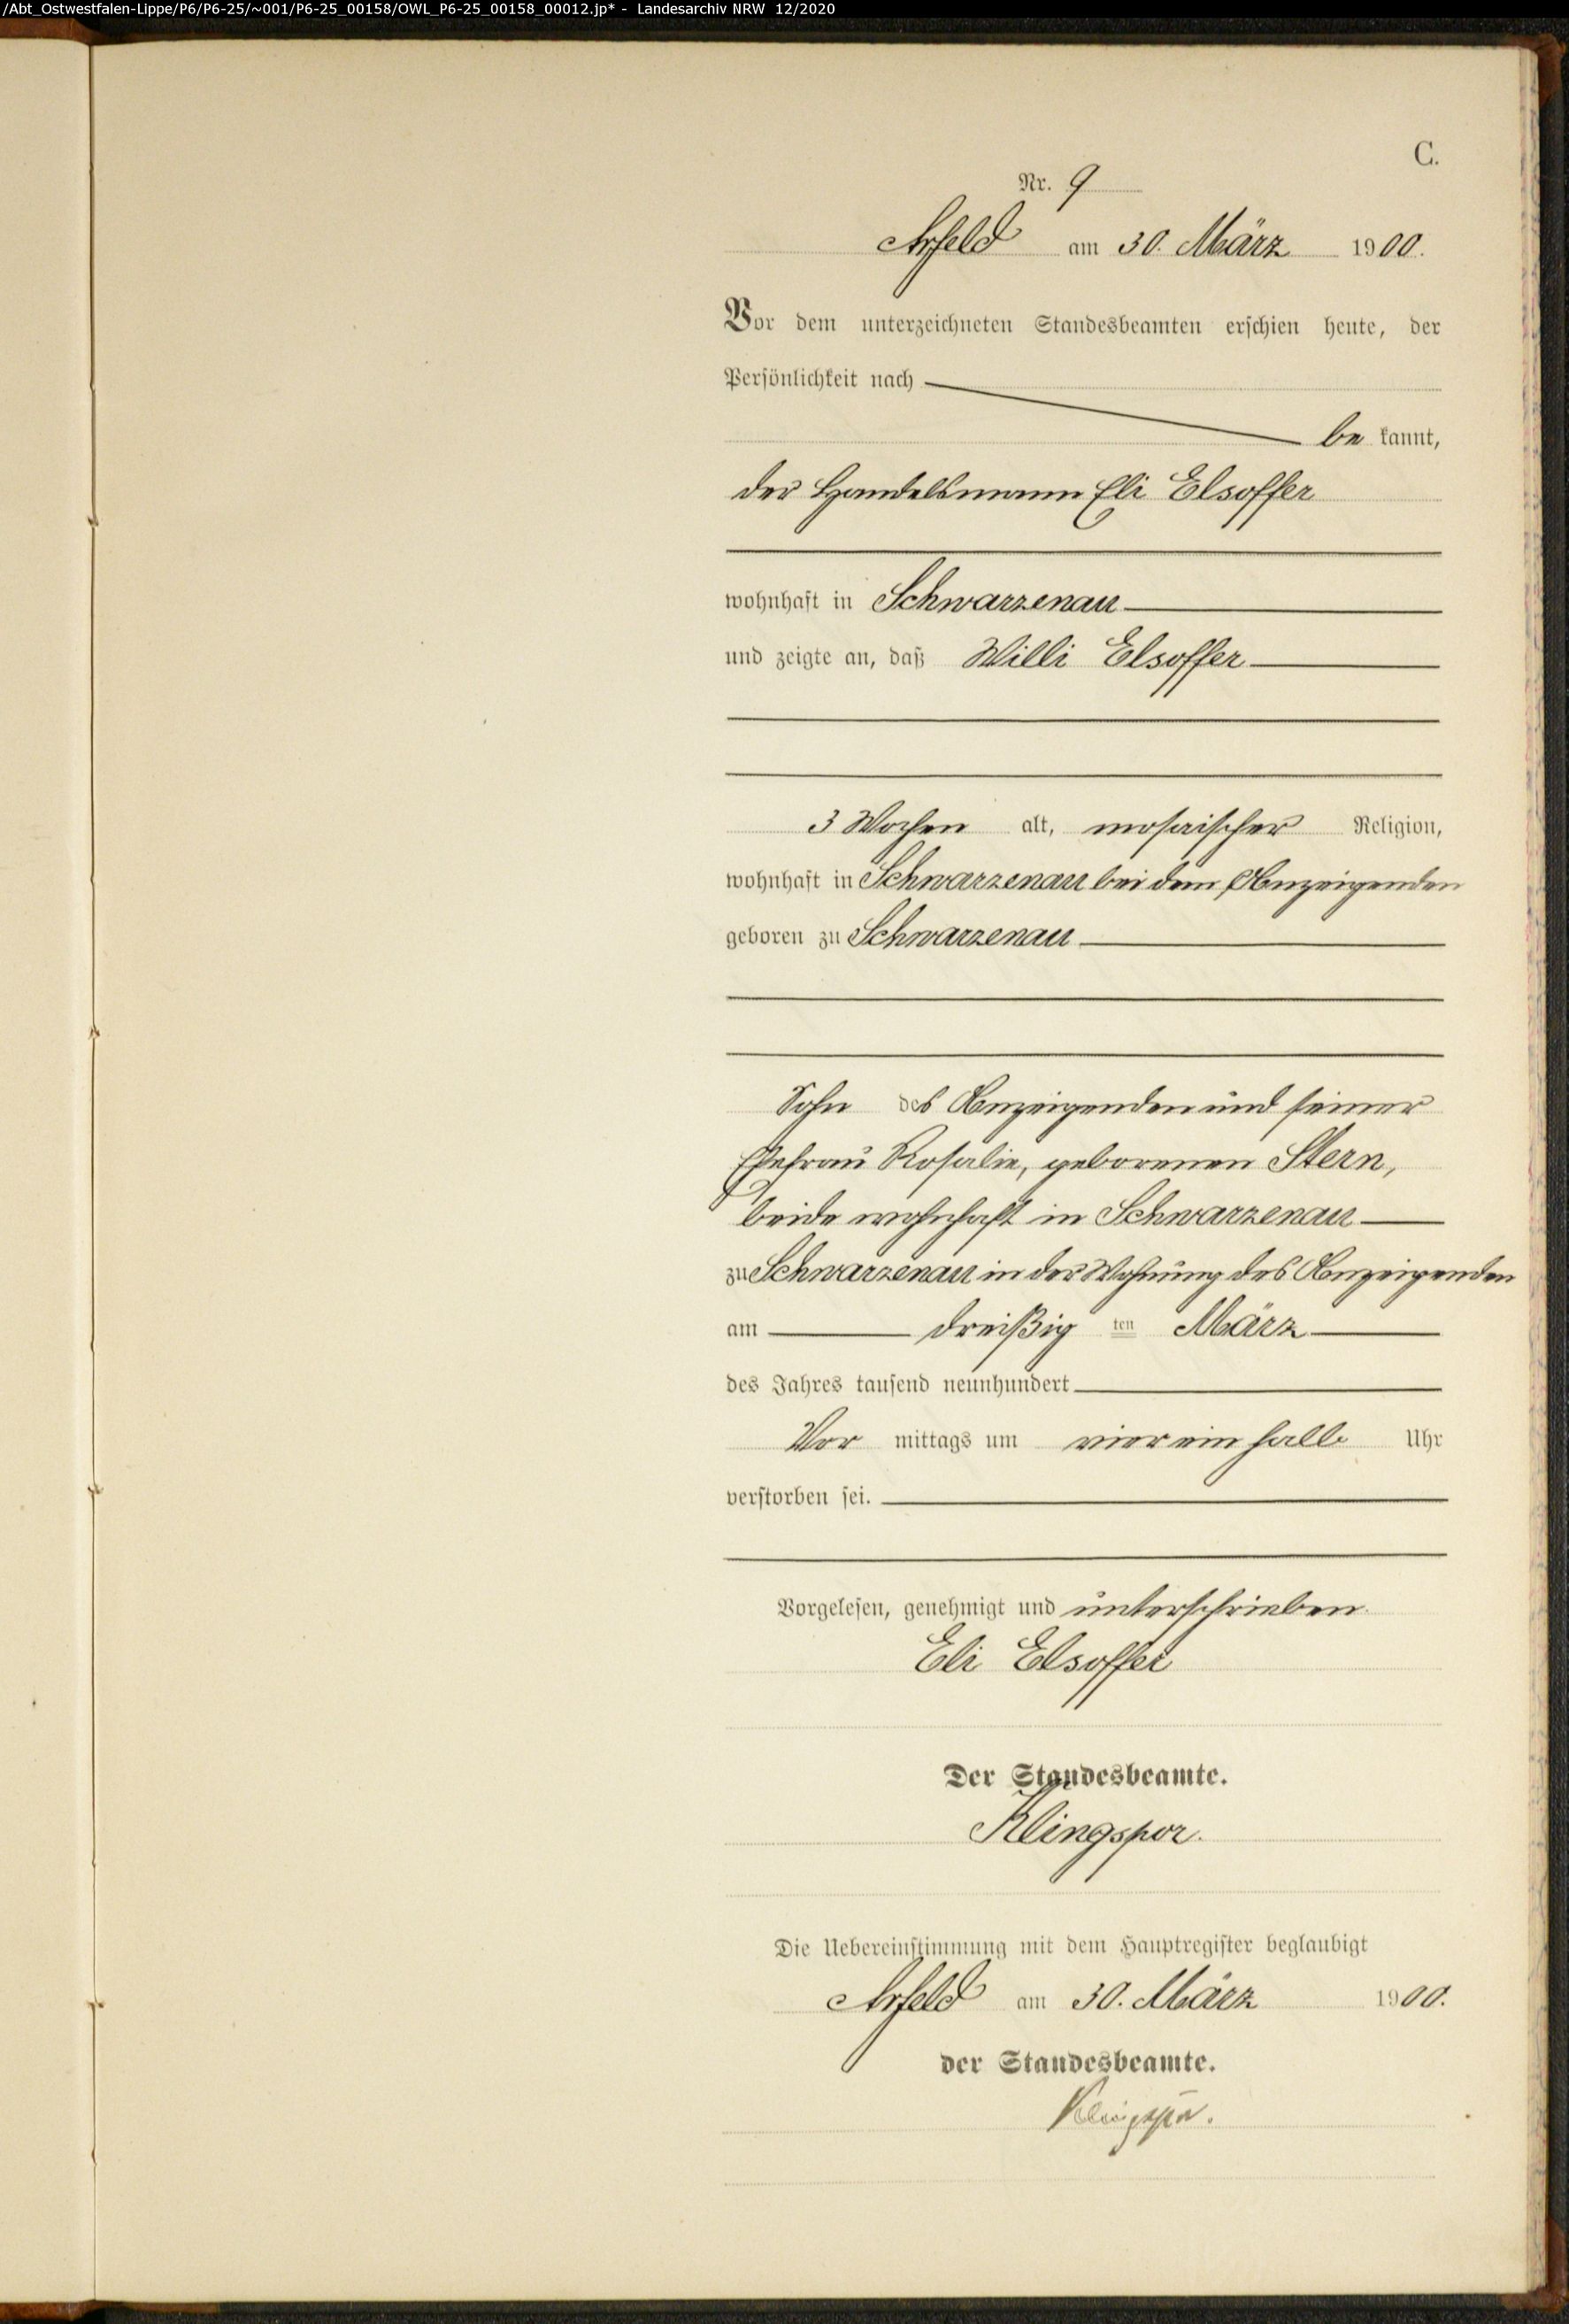 /Abt_Ostwestfalen-Lippe/P6/P6-25/~001/P6-25_00158/OWL_P6-25_00158_00012.jp* - Landesarchiv NRW 12/2020
C.
Nr. 9
Arfeld am 30. März 1900.
Vor dem unterzeichneten Standesbeamten erschien heute, der
Persönlichkeit nach
be kannt,
der Handelsmann Eli Elsoffer
wohnhaft in Schwarzenau
und zeigte an, daß Willi Elsoffer
3 Wochen alt, mosaischer Religion,
wohnhaft in Schwarzenau bei dem Anzeigenden
geboren zu Schwarzenau
Sohn des Anzeigenden und seiner
Ehefrau Rosalie, geborenen Stern,
beide wohnhaft in Schwarzenau
zu Schwarzenau in der Wohnung des Anzeigenden
am dreißig ten März
des Jahres tausend neunhundert
Vor mittags um vier ein halb Uhr
verstorben sei.
Vorgelesen, genehmigt und unterschrieben.
Eli Elsoffer
Der Standesbeamte.
Klingspor.
Die Uebereinstimmung mit dem Hauptregister beglaubigt
Arfeld am 30. März 1900.
der Standesbeamte.
Klingspor.